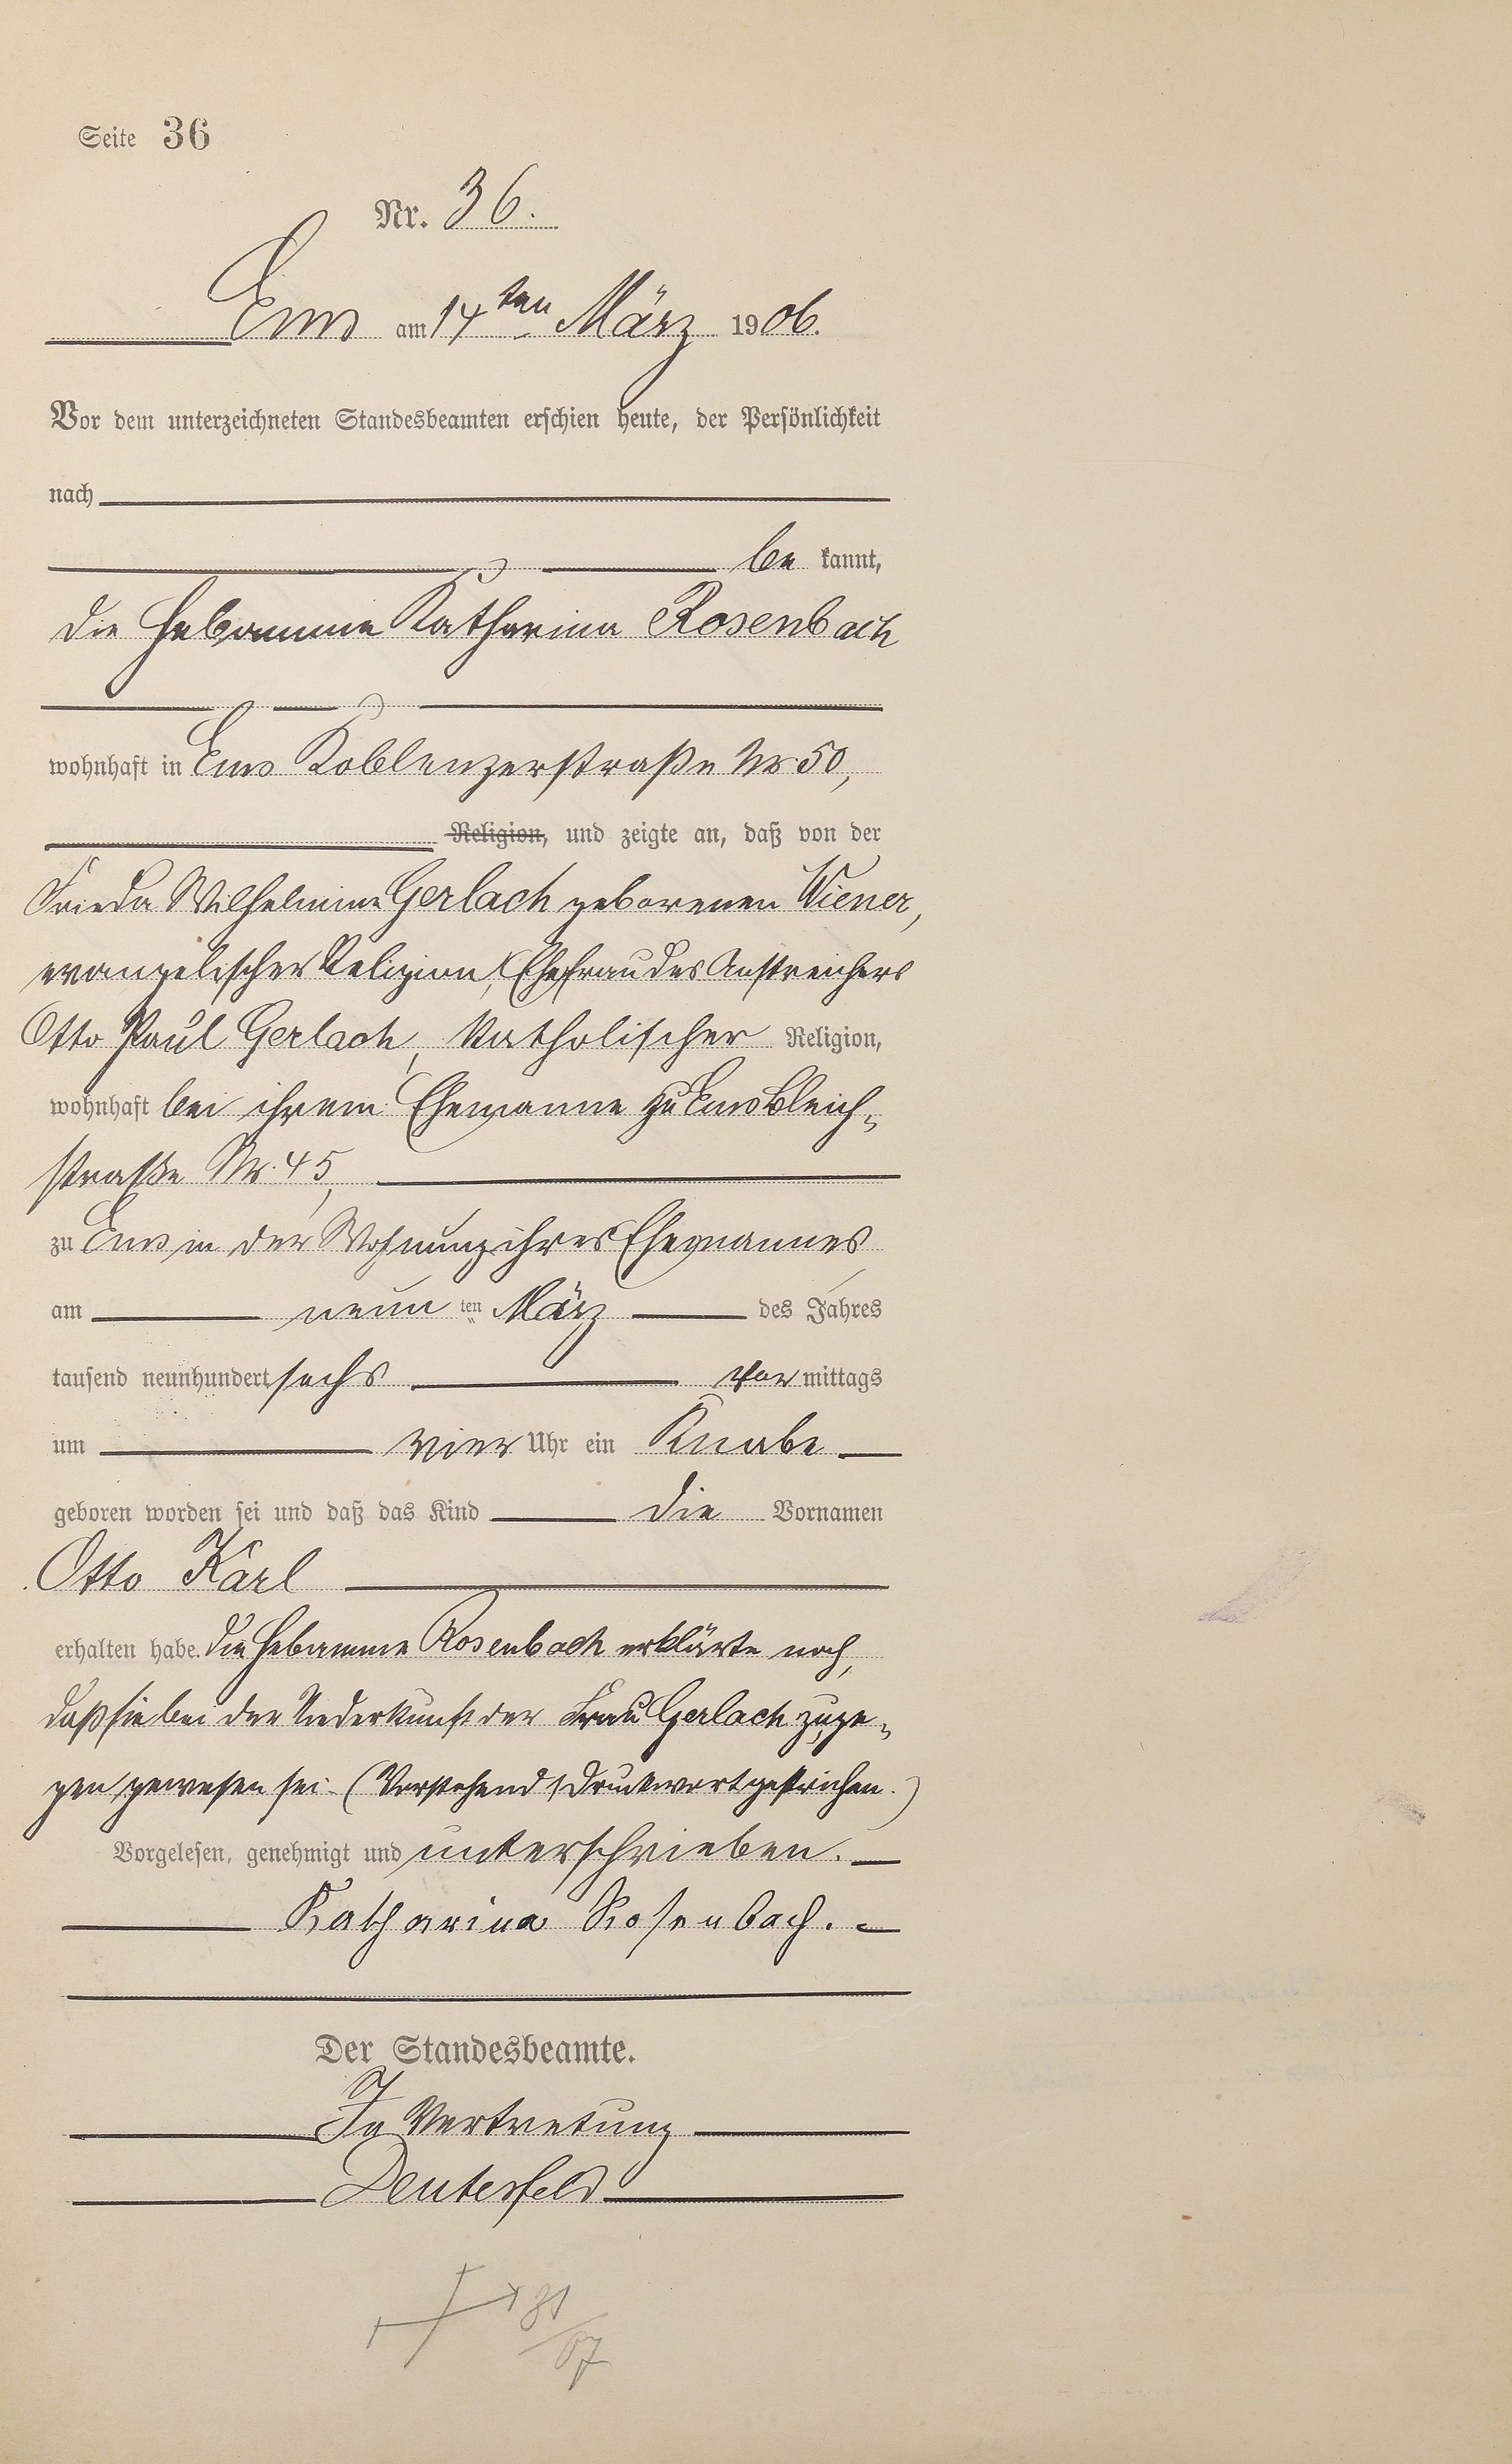 Seite 36
Nr. 36.
Ems am 14ten März 1906.
Vor dem unterzeichneten Standesbeamten erschien heute, der Persönlichkeit
nach
be kannt,
die Hebamme Katharina Rosenbach
wohnhaft in Ems Koblenzerstraße Nr. 50,
Religion, und zeigte an, daß von der
Frieda Wilhelmine Gerlach geborenen Wiener,
evangelischer Religion, Ehefrau des Anstreichers
Otto Paul Gerlach, katholischer Religion,
wohnhaft bei ihrem Ehemanne zu Ems Bleich-
straße Nr. 45,
zu Ems in der Wohnung ihres Ehemannes
am neun ten März des Jahres
tausend neunhundert sechs vor mittags
um vier Uhr ein Knabe
geboren worden sei und daß das Kind die Vornamen
Otto Karl
erhalten habe. Die Hebamme Rosenbach erklärte noch,
daß sie bei der Niederkunft der Frau Gerlach zuge-
gen gewesen sei. (Vorstehend 1 Druckwort gestrichen.)
Vorgelesen, genehmigt und unterschrieben.
Katharina Rosenbach.
Der Standesbeamte.
In Vertretung
31
07